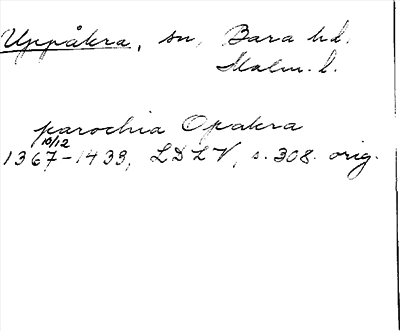 Uppåkra, sn, Bara hd.
Malm. l.
parochia Opakra
10/12
1367-1433, LDLV, s. 308. orig.